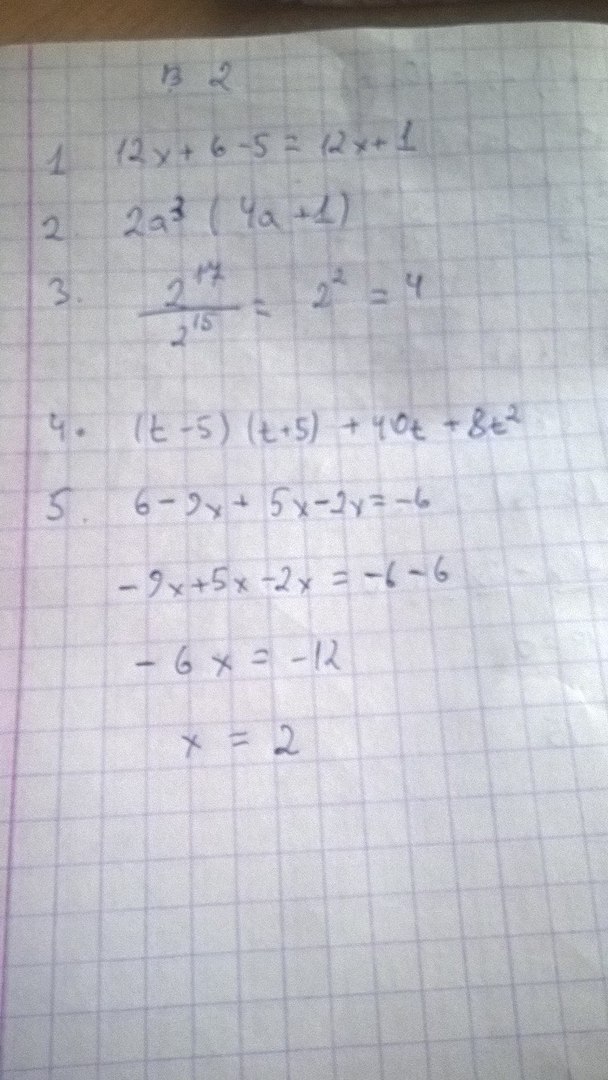 В 2
1 12x + 6 - 5 = 12x + 1
2. 2a³ (4a + 1)
3. 2¹⁷ / 2¹⁵ = 2² = 4
4. (t - 5) (t + 5) + 40t + 8t²
5. 6 - 9x + 5x - 2x = -6
- 9x + 5x - 2x = -6 - 6
- 6x = -12
x = 2